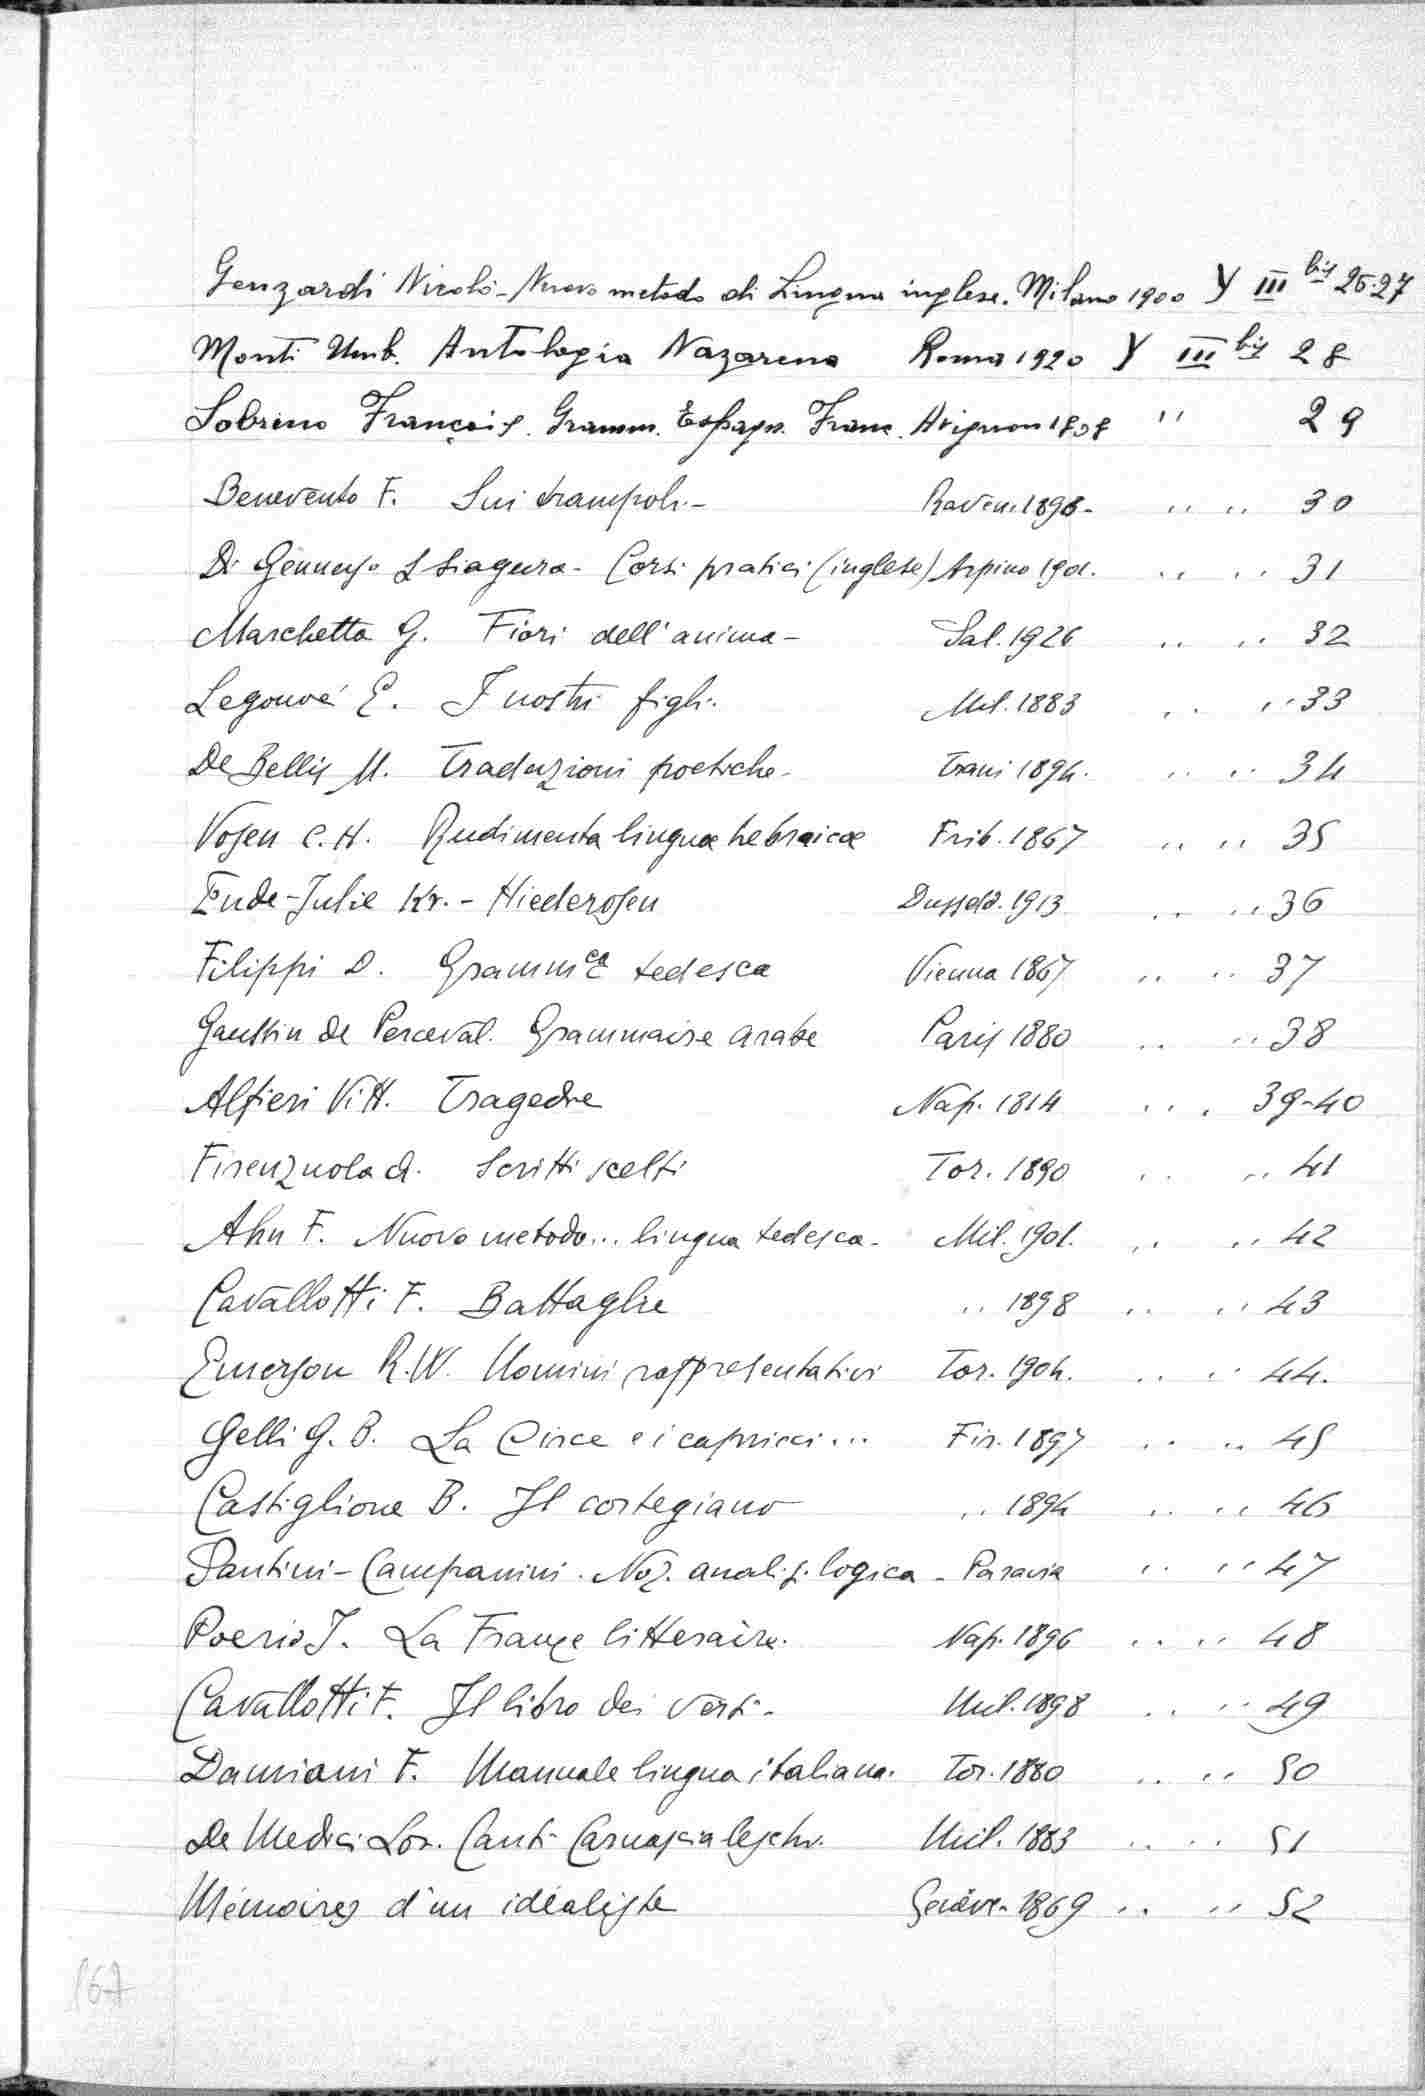 Genzardi Nicolò - Nuovo metodo di Lingua inglese. Milano 1900 Y III bis 26-27
Monti Umb. Antologia Nazarena Roma 1920 Y III bis 28
Sobrino François. Gramm. Espagn. Franc. Avignon 1808 " 29
Benevento F. Sui trampoli - Raven. 1898 - " " 30
Di Gennaro - Corsi pratici (inglese) Arpino 1901. " " 31
Marchetta G. Fiori dell'anima - Sal. 1926 " " 32
Legouvé E. I nostri figli. Mil. 1883 " " 33
De Bellis M. Traduzioni poetiche - Trani 1894. " " 34
Vosen C. H. Rudimenta linguæ hebraicæ Frib. 1867 " " 35
Ende-Julie Kr. - Hiederosen Dusseld. 1913 " " 36
Filippi D. Gramm.ca tedesca Vienna 1867 " " 37
Gaussin de Perceval. Grammaire arabe Paris 1880 " " 38
Alfieri Vitt. Tragedie Nap. 1814 " " 39-40
Firenzuola A. Scritti scelti Tor. 1890 " " 41
Ahn F. Nuovo metodo... lingua tedesca - Mil. 1901. " " 42
Cavallotti F. Battaglie " 1898 " " 43
Emerson R. W. Uomini rappresentativi Tor. 1904. " " 44.
Gelli G. B. La Circe e i capricci... Fir. 1897 " " 45
Castiglione B. Il cortegiano " 1894 " " 46
Santini - Campanini. Noz. analis. logica - Paravia " " 47
Poerio J. La France litteraire. Nap. 1896 " " 48
Cavallotti F. Il libro dei versi - Mil. 1898 " " 49
Damiani F. Manuale lingua italiana. Tor. 1880 " " 50
De Medici Lor. Canti Carnascialeschi. Mil. 1883 " " 51
Mémoires d'un idéaliste Genève - 1869 " " 52
167